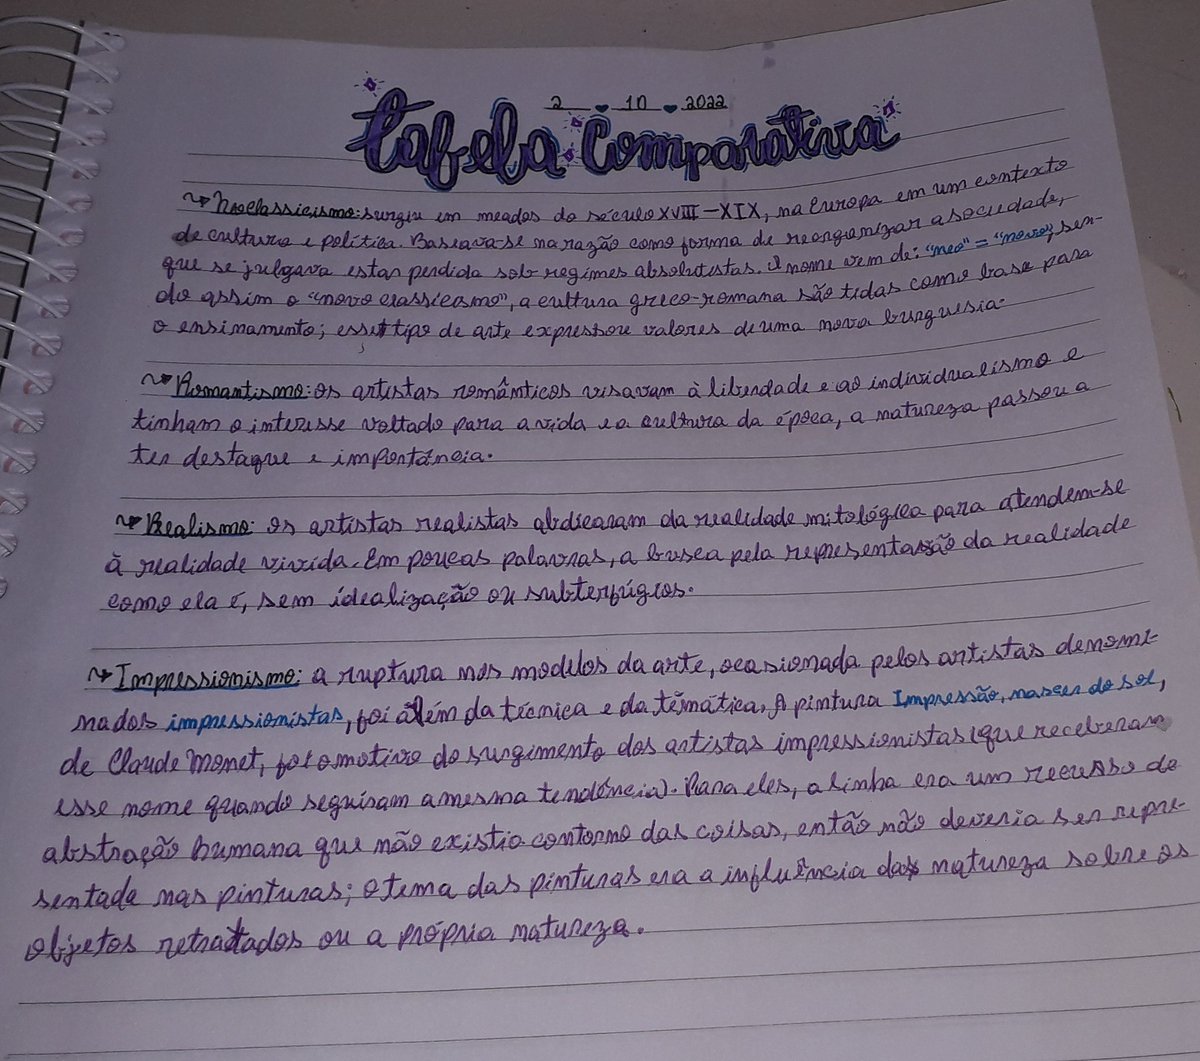 2 10 2022
Tabela Comparativa
Neoclassicismo: surgiu em meados do século XVIII-XIX, na Europa em um contexto
de cultura e política. Baseava-se na razão como forma de reorganizar a sociedade,
que se julgava estar perdida sob regimes absolutistas. O nome vem de: "neo" = "novo", sen-
do assim o "novo classicismo", a cultura greco-romana são tidas como base para
o ensinamento; esse tipo de arte expressou valores de uma nova burguesia.
Romantismo: os artistas românticos visavam à liberdade e ao individualismo e
tinham o interesse voltado para a vida e a cultura da época, a natureza passou a
ter destaque e importância.
Realismo: os artistas realistas abdicaram da realidade mitológica para atendem-se
à realidade vivida. Em poucas palavras, a busca pela representação da realidade
como ela é, sem idealização ou subterfúgios.
Impressionismo: a ruptura nos modelos da arte, ocasionada pelos artistas denomi-
nados impressionistas, foi além da técnica e da temática. A pintura Impressão, nascer do sol,
de Claude Monet, foi o motivo do surgimento dos artistas impressionistas (que receberam
esse nome quando seguiram a mesma tendência). Para eles, a linha era um recurso de
abstração humana que não existia contorno das coisas, então não deveria ser repre-
sentada nas pinturas; o tema das pinturas era a influência da natureza sobre os
objetos retratados ou a própria natureza.